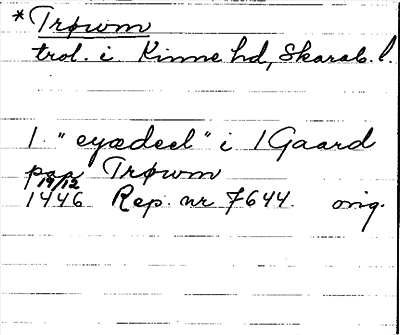 *Trøwm
trol. i Kinne hd, Skarab. l.
1 "eyædeel" i 1 Gaard
paa Trøwm
19/12
1446 Rep. nr 7644. orig.